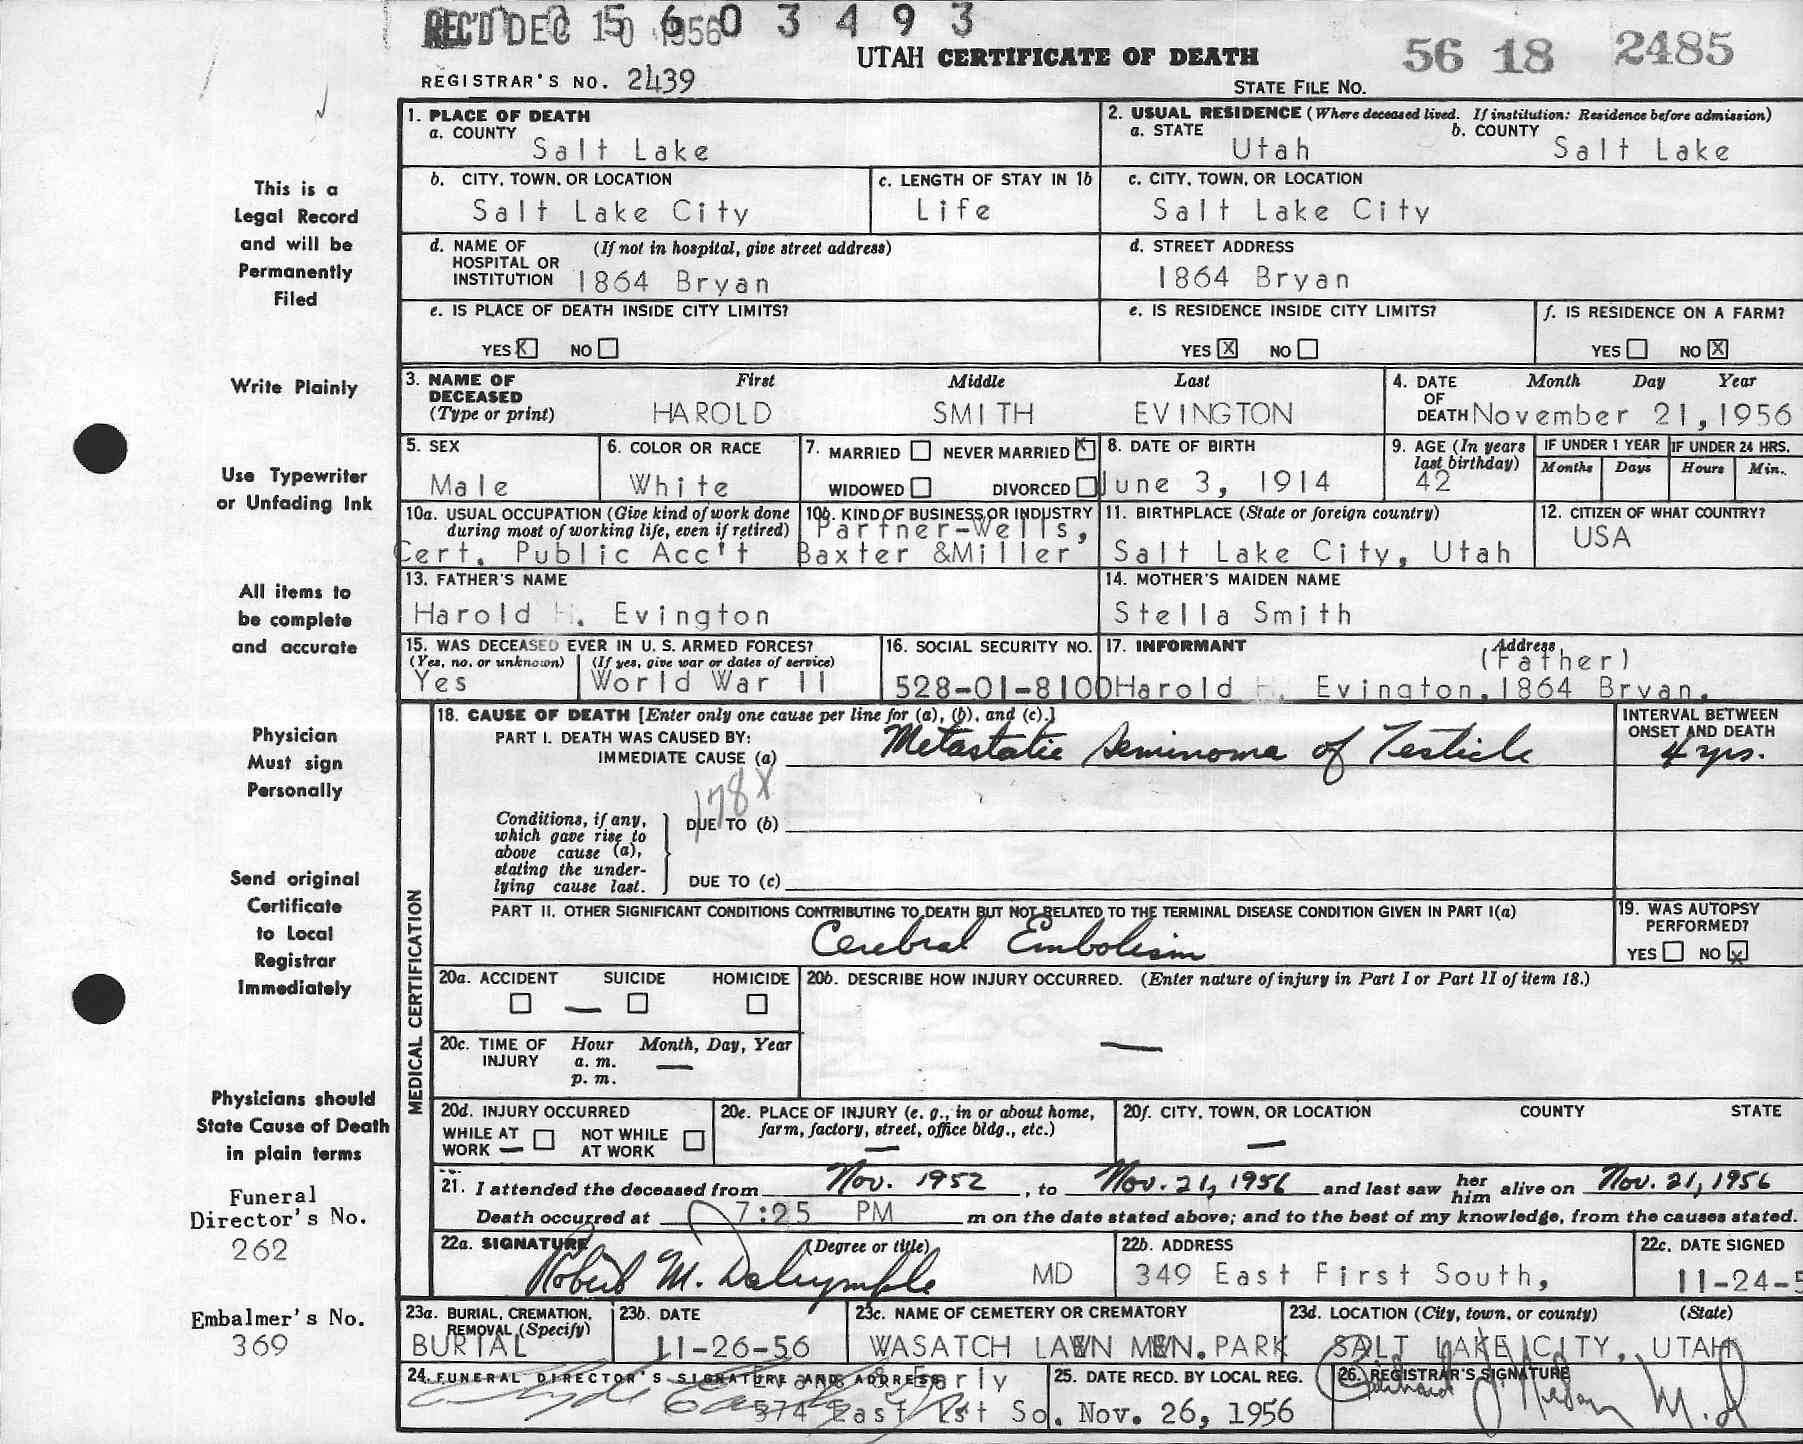 REC'D DEC 10 1956
5 6 0 3 4 9 3
UTAH CERTIFICATE OF DEATH
56 18 2485
REGISTRAR'S NO. 2439
STATE FILE NO.
This is a
Legal Record
and will be
Permanently
Filed
Write Plainly
Use Typewriter
or Unfading Ink
All items to
be complete
and accurate
Physician
Must sign
Personally
Send original
Certificate
to Local
Registrar
Immediately
Physicians should
State Cause of Death
in plain terms
Funeral
Director's No.
262
Embalmer's No.
369
1. PLACE OF DEATH
a. COUNTY
Salt Lake
2. USUAL RESIDENCE (Where deceased lived. If institution: Residence before admission)
a. STATE
Utah
b. COUNTY
Salt Lake
b. CITY, TOWN, OR LOCATION
Salt Lake City
c. LENGTH OF STAY IN 1b
Life
c. CITY, TOWN, OR LOCATION
Salt Lake City
d. NAME OF (If not in hospital, give street address)
HOSPITAL OR
INSTITUTION 1864 Bryan
d. STREET ADDRESS
1864 Bryan
e. IS PLACE OF DEATH INSIDE CITY LIMITS?
YES X NO
e. IS RESIDENCE INSIDE CITY LIMITS?
YES X NO
f. IS RESIDENCE ON A FARM?
YES NO X
3. NAME OF First Middle Last
DECEASED
(Type or print) HAROLD SMITH EVINGTON
4. DATE Month Day Year
OF
DEATH November 21, 1956
5. SEX
Male
6. COLOR OR RACE
White
7. MARRIED NEVER MARRIED X
WIDOWED DIVORCED
8. DATE OF BIRTH
June 3, 1914
9. AGE (In years
last birthday)
42
IF UNDER 1 YEAR
Months Days
IF UNDER 24 HRS.
Hours Min.
10a. USUAL OCCUPATION (Give kind of work done
during most of working life, even if retired)
Cert. Public Acc't
10b. KIND OF BUSINESS OR INDUSTRY
Partner-Wells,
Baxter &Miller
11. BIRTHPLACE (State or foreign country)
Salt Lake City, Utah
12. CITIZEN OF WHAT COUNTRY?
USA
13. FATHER'S NAME
Harold H. Evington
14. MOTHER'S MAIDEN NAME
Stella Smith
15. WAS DECEASED EVER IN U. S. ARMED FORCES?
(Yes, no, or unknown) (If yes, give war or dates of service)
Yes World War II
16. SOCIAL SECURITY NO.
528-01-8100
17. INFORMANT Address
(Father)
Harold H. Evington, 1864 Bryan,
MEDICAL CERTIFICATION
18. CAUSE OF DEATH [Enter only one cause per line for (a), (b), and (c).]
PART I. DEATH WAS CAUSED BY:
IMMEDIATE CAUSE (a) Metastatic Seminoma of Testicle
INTERVAL BETWEEN
ONSET AND DEATH
4 yrs.
178X
Conditions, if any,
which gave rise to
above cause (a),
stating the under-
lying cause last.
DUE TO (b)
DUE TO (c)
PART II. OTHER SIGNIFICANT CONDITIONS CONTRIBUTING TO DEATH BUT NOT RELATED TO THE TERMINAL DISEASE CONDITION GIVEN IN PART I(a)
Cerebral Embolism
19. WAS AUTOPSY
PERFORMED?
YES NO X
20a. ACCIDENT SUICIDE HOMICIDE
—
20b. DESCRIBE HOW INJURY OCCURRED. (Enter nature of injury in Part I or Part II of item 18.)
—
20c. TIME OF Hour Month, Day, Year
INJURY a. m. —
p. m.
20d. INJURY OCCURRED
WHILE AT NOT WHILE
WORK — AT WORK
20e. PLACE OF INJURY (e. g., in or about home,
farm, factory, street, office bldg., etc.)
—
20f. CITY, TOWN, OR LOCATION COUNTY STATE
—
21. I attended the deceased from Nov. 1952, to Nov. 21, 1956 and last saw her him alive on Nov. 21, 1956
Death occurred at 7:25 PM m on the date stated above; and to the best of my knowledge, from the causes stated.
22a. SIGNATURE (Degree or title)
Robert M. Dalrymple MD
22b. ADDRESS
349 East First South,
22c. DATE SIGNED
11-24-5
23a. BURIAL, CREMATION,
REMOVAL (Specify)
BURIAL
23b. DATE
11-26-56
23c. NAME OF CEMETERY OR CREMATORY
WASATCH LAWN MEM. PARK
23d. LOCATION (City, town, or county) (State)
SALT LAKE CITY, UTAH
24. FUNERAL DIRECTOR'S SIGNATURE AND ADDRESS
Evans & Early
574 East 1st So.
25. DATE RECD. BY LOCAL REG.
Nov. 26, 1956
26. REGISTRAR'S SIGNATURE
M.D.